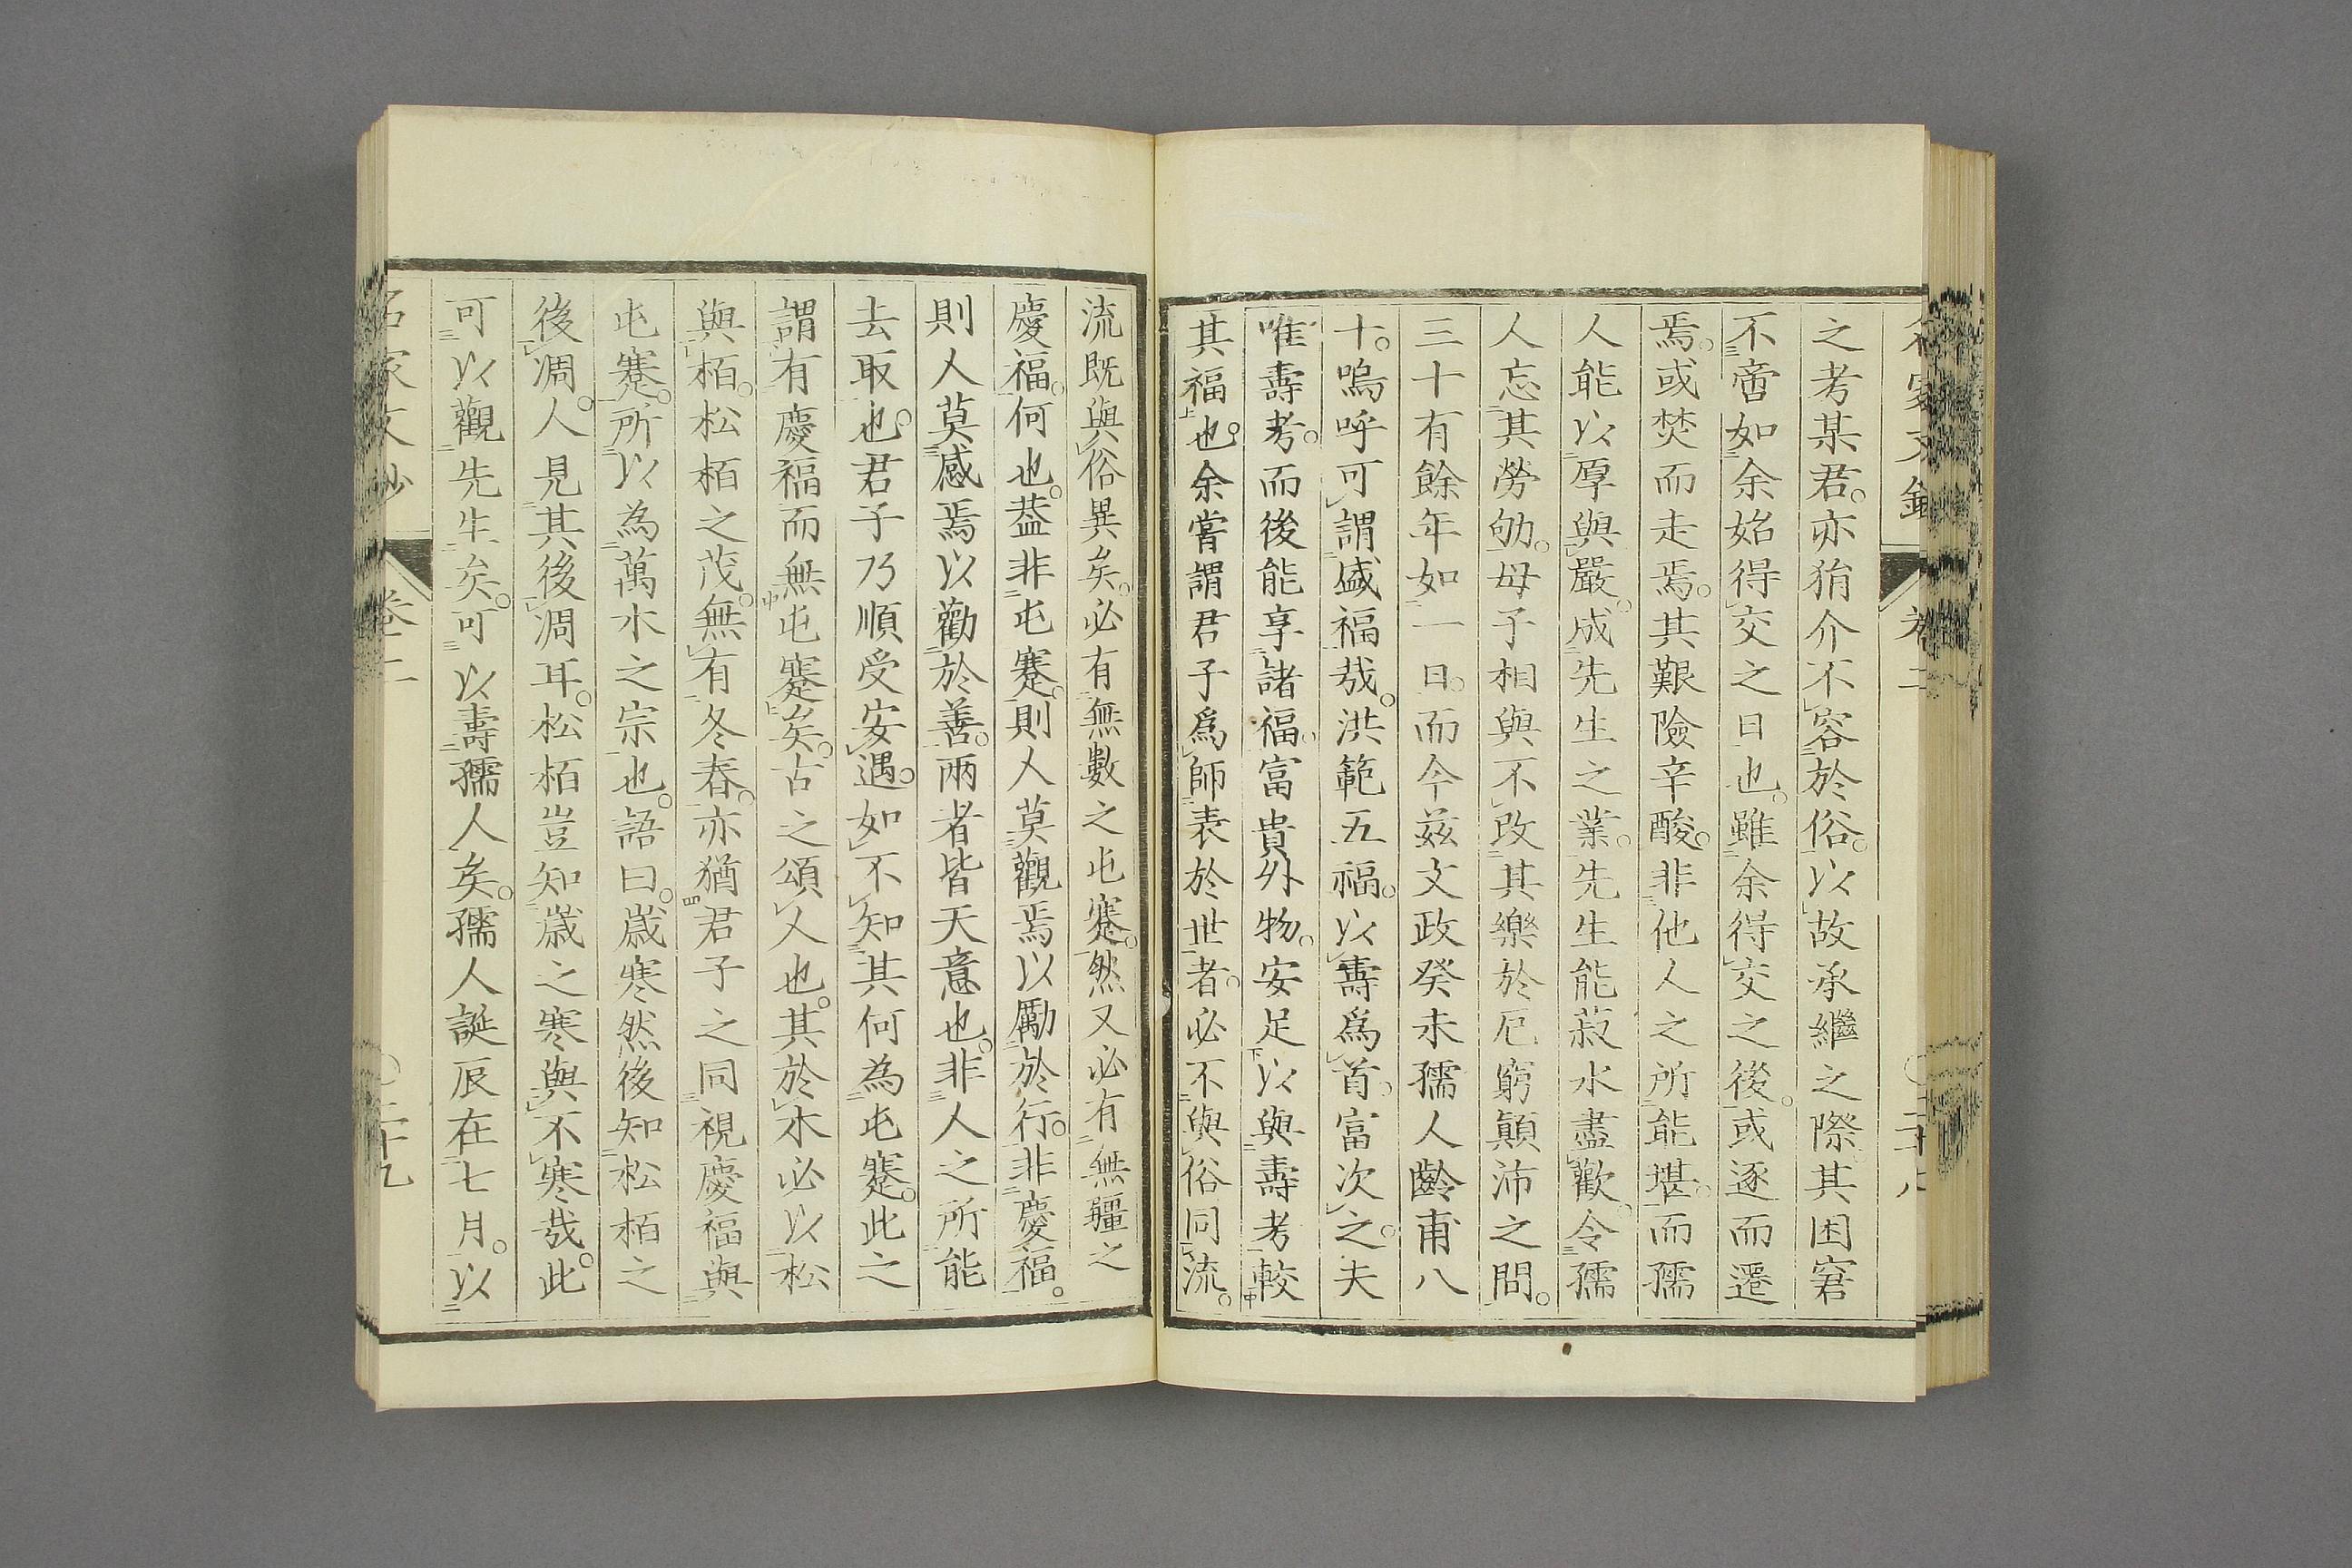 之考某君。亦狷介不容於俗。以故承繼之際。其困窘
不啻如余始得交之日也。雖余得交之後。或逐而遷
焉。或焚而走焉。其艱險辛酸。非他人之所能堪。而孺
人能以厚與嚴。成先生之業。先生能菽水盡歡。令孺
人忘其勞劬。母子相與不改其樂於厄窮顛沛之間。
三十有餘年如一日。而今茲文政癸未孺人齡甫八
十。嗚呼可謂盛福哉。洪範五福。以壽爲首。富次之。夫
唯壽考。而後能享諸福。富貴外物。安足以與壽考較
其福也。余嘗謂君子爲師表於世者。必不與俗同流。
流既與俗異矣。必有無數之屯蹇。然又必有無疆之
慶福。何也。葢非屯蹇。則人莫觀焉以勵於行。非慶福。
則人莫感焉以勸於善。兩者皆天意也。非人之所能
去取也。君子乃順受安遇。如不知其何為屯蹇。此之
謂有慶福而無屯蹇矣。古之頌人也。其於木必以松
與栢。松栢之茂。無有冬春。亦猶君子之同視慶福與
屯蹇。所以為萬木之宗也。語曰。歲寒然後知松栢之
後凋。人見其後凋耳。松栢豈知歲之寒與不寒哉。此
可以觀先生矣。可以壽孺人矣。孺人誕辰在七月。以
名家文抄 卷二 〇二十九